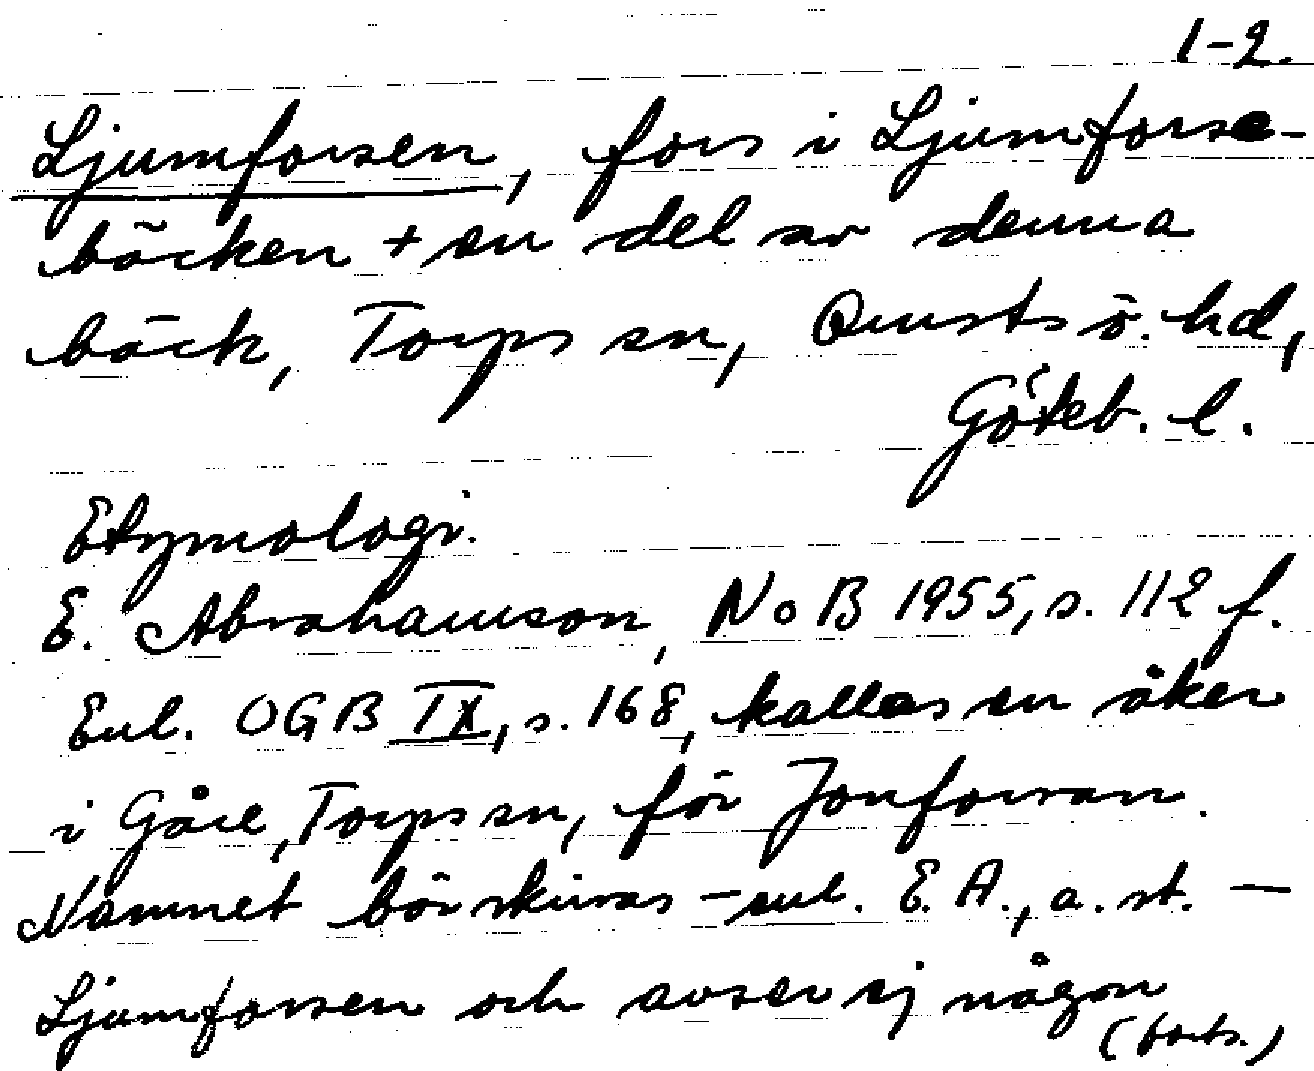 1-2.
Ljumforsen, fors i Ljumforse-
bäcken + en del av denna
bäck, Torps sn, Orusts ö. hd,
Göteb. l.
Etymologi.
E. Abrahamson, NoB 1955, s. 112 f.
Enl. OGB IX, s. 168, kallas en åker
i Gåre, Torps sn, för Jonforsan.
Namnet bör skrivas - enl. E. A., a. st. -
Ljumforsen och avser ej någon
(forts.)